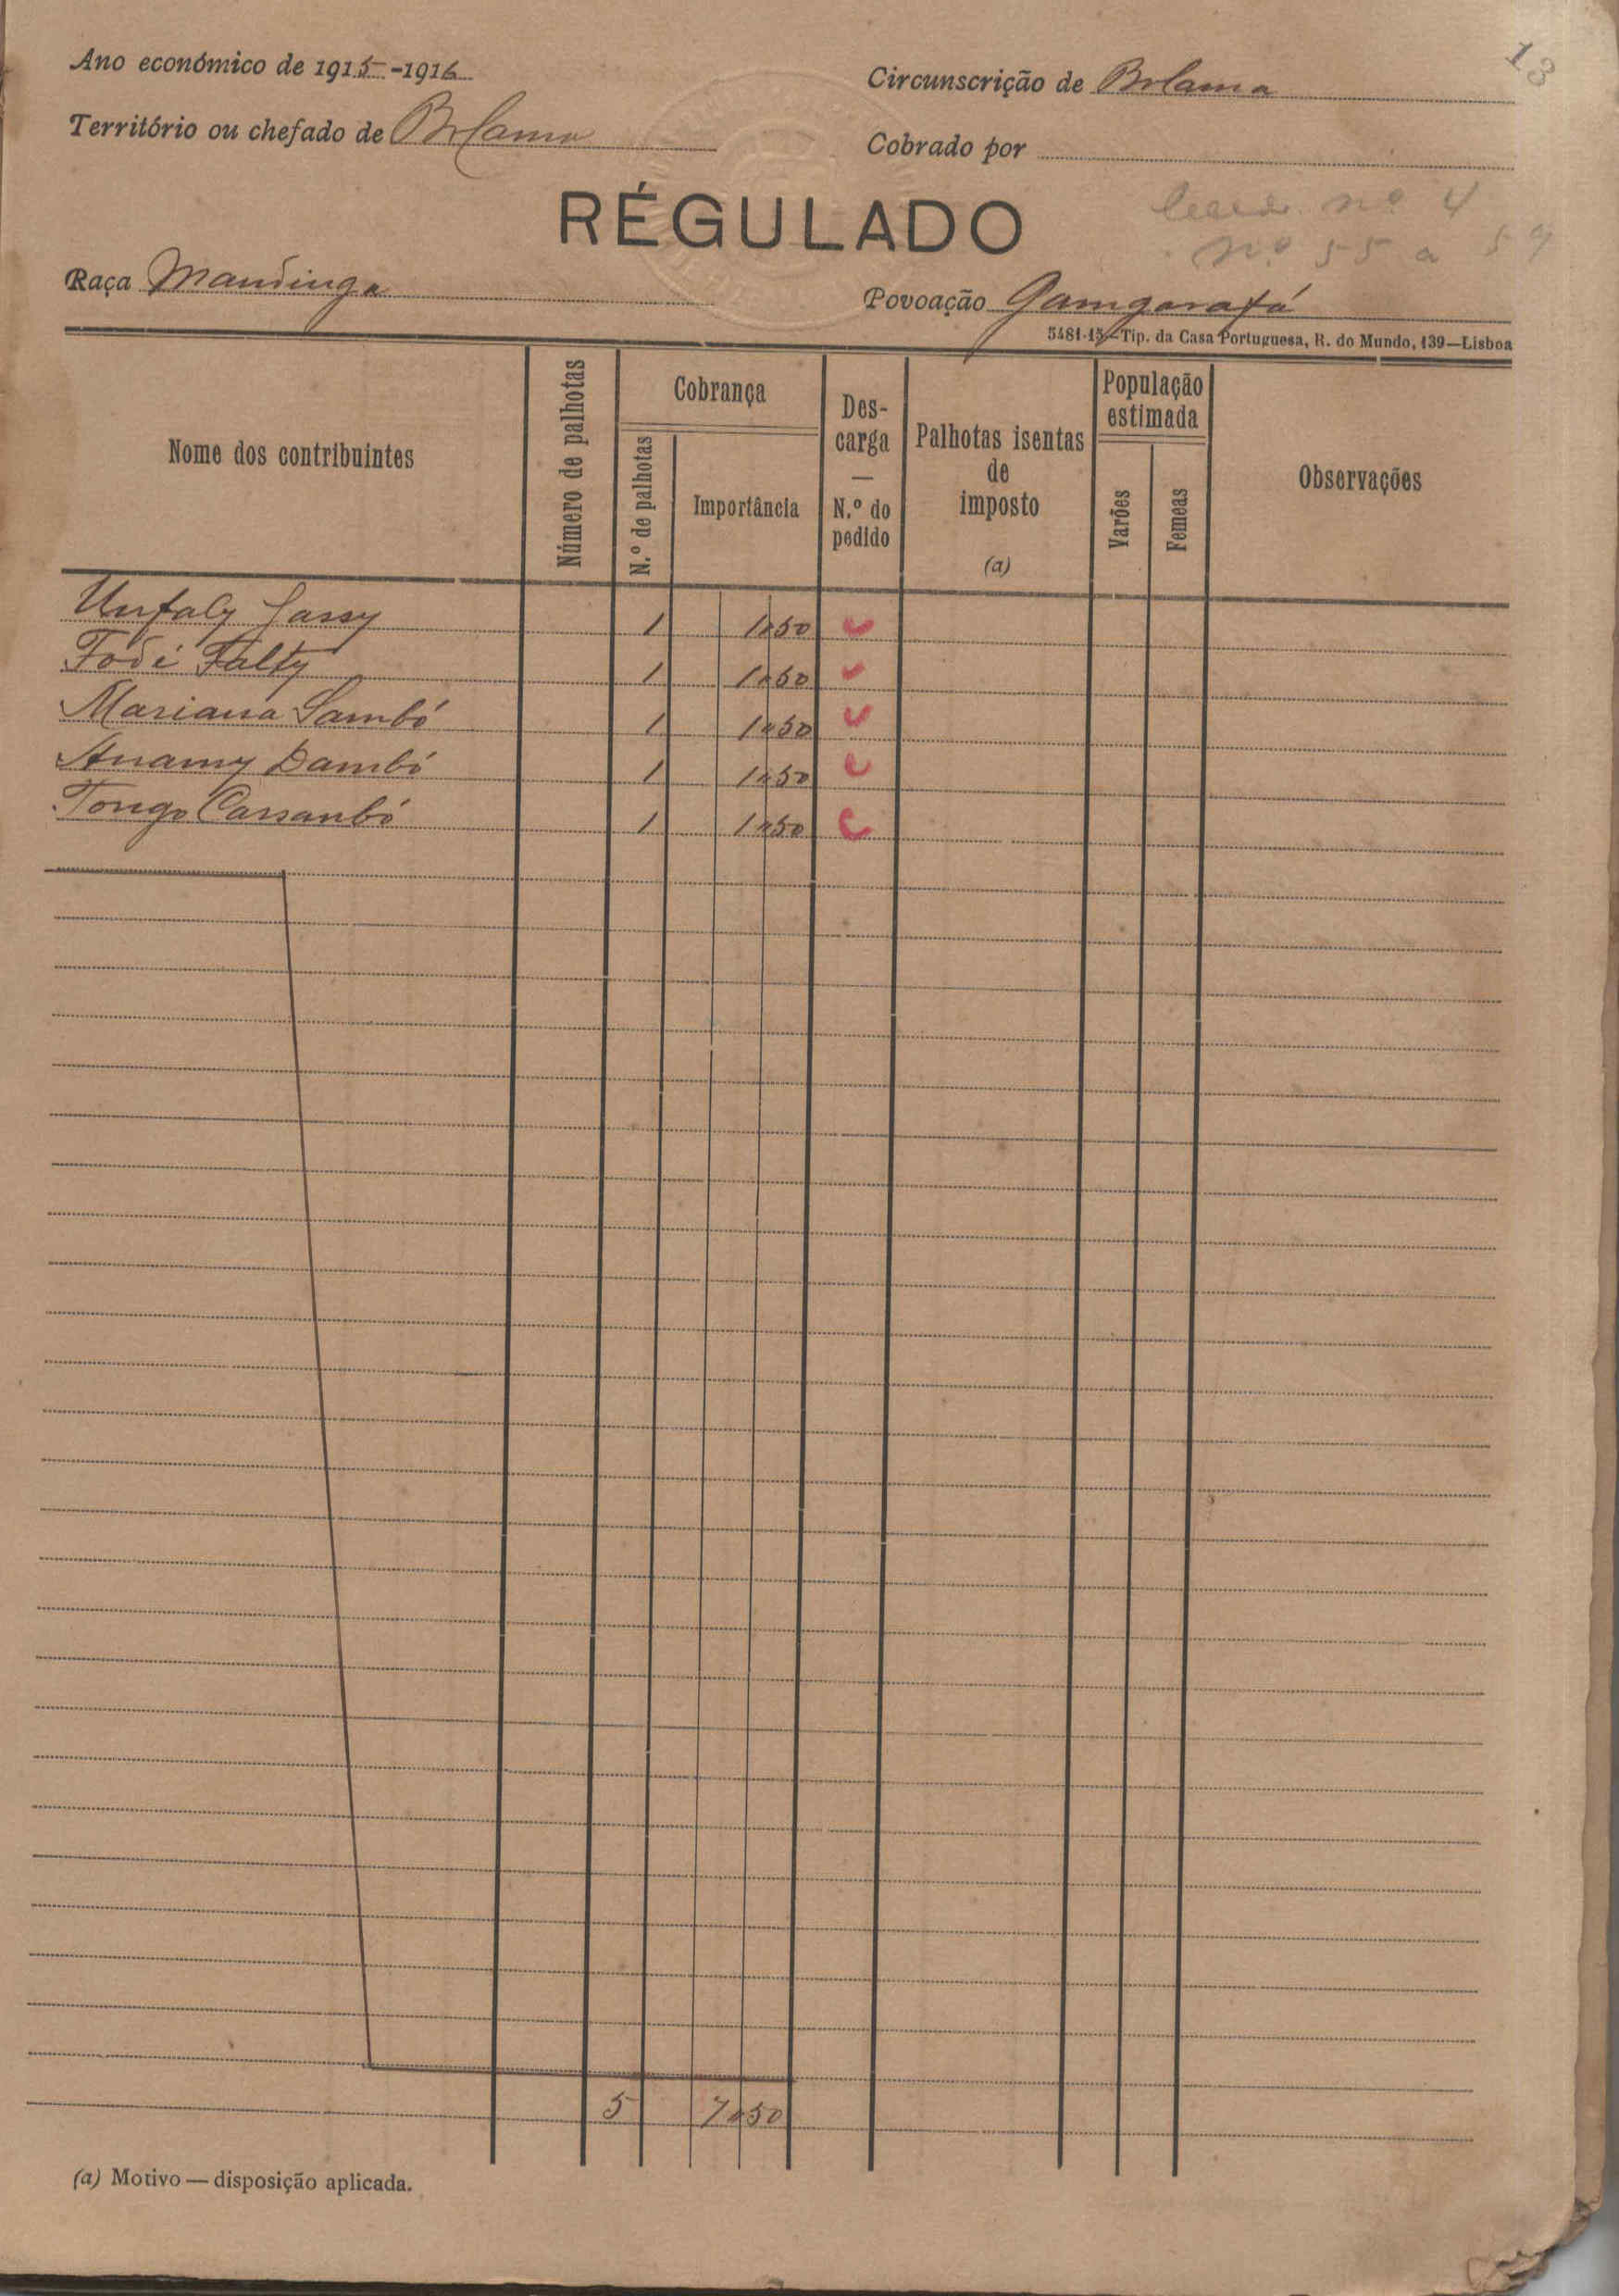 13
Ano económico de 1915-1916
Circunscrição de Bolama
Território ou chefado de Bolama
Cobrado por
RÉGULADO
nº 4
nº 55 a 59
Raça Mandinga
Povoação Gamgarafá
5481-15-Tip. da Casa Portuguesa, R. do Mundo, 139-Lisboa
Nome dos contribuintes
Número de palhotas
Cobrança
N.º de palhotas
Importância
Des-
carga
—
N.º do
pedido
Palhotas isentas
de
imposto
(a)
População
estimada
Varões
Femeas
Observações
Unfaly Jassy 1 1$50
Fodi Falty 1 1$50
Mariana Sambó 1 1$50
Anamy Dambó 1 1$50
Tongo Cassanbó 1 1$50
5 7$50
(a) Motivo — disposição aplicada.